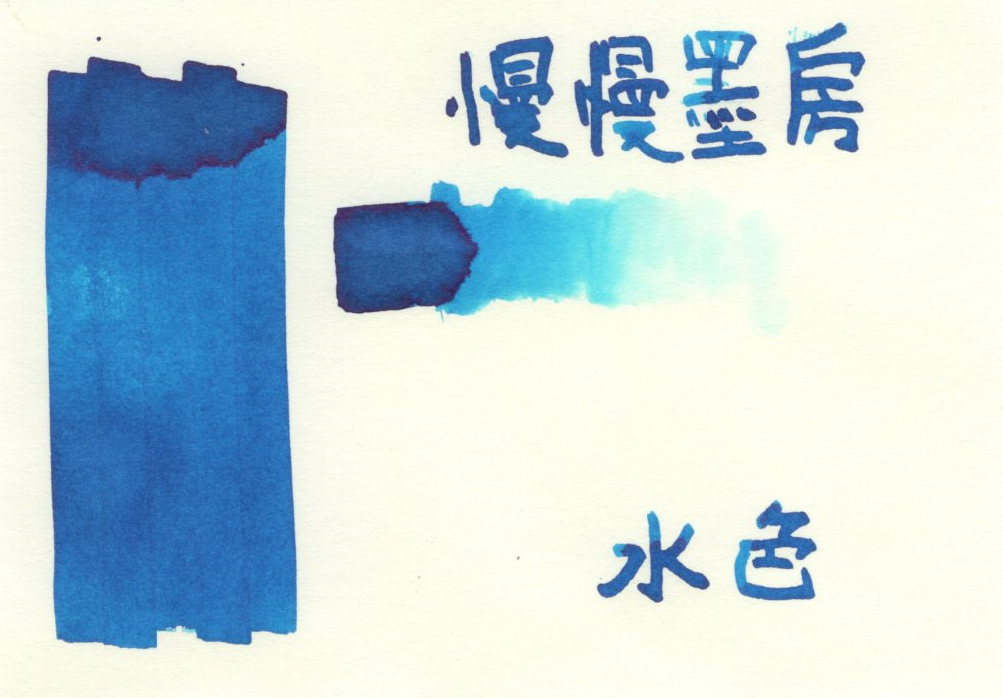 慢慢墨房
水色